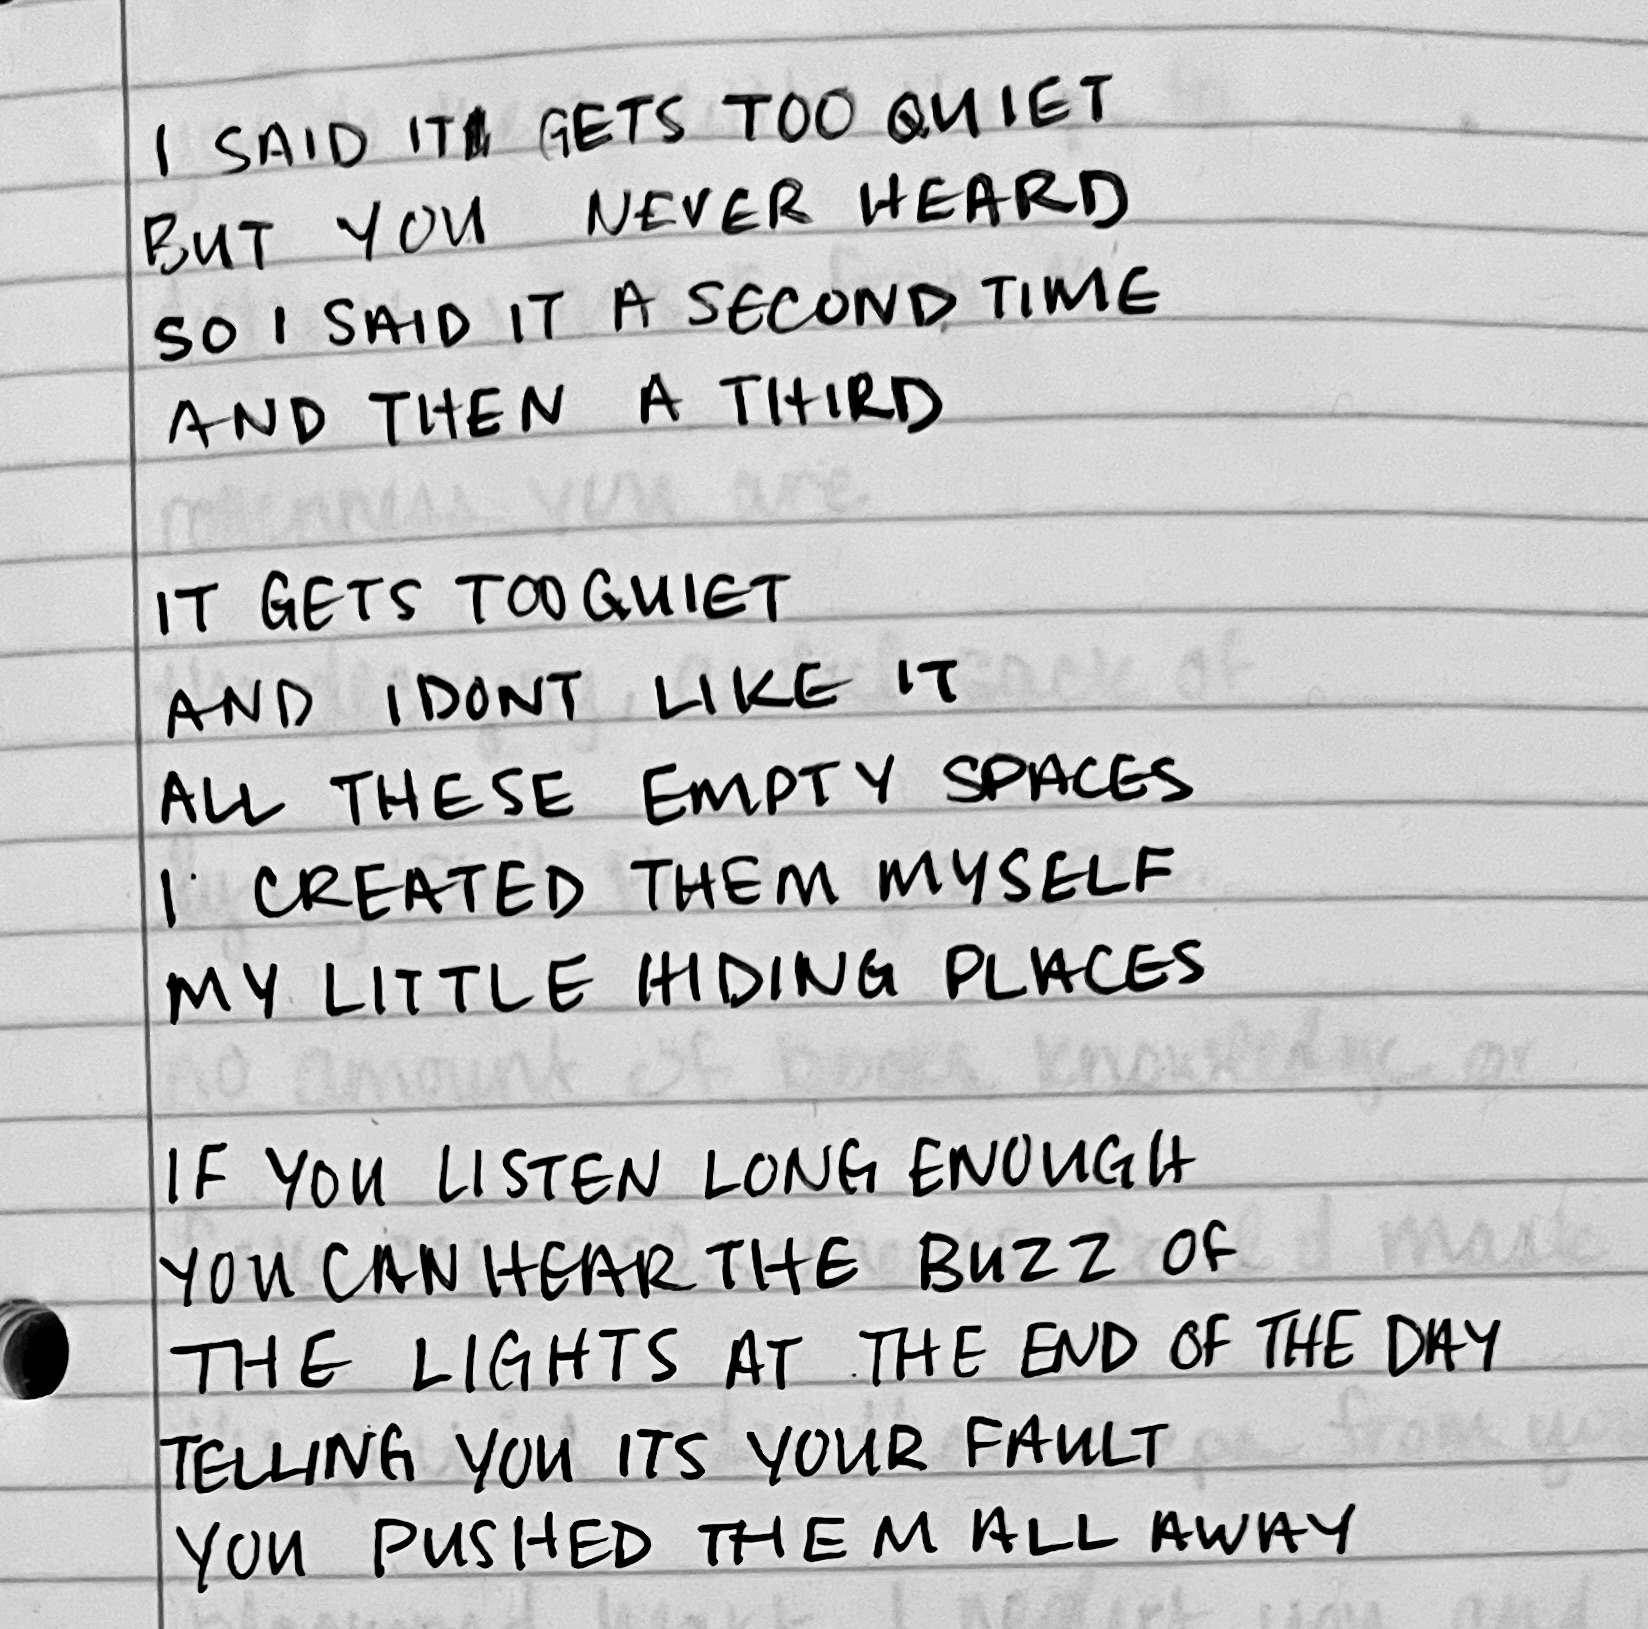 I SAID IT GETS TOO QUIET
BUT YOU NEVER HEARD
SO I SAID IT A SECOND TIME
AND THEN A THIRD
you are
IT GETS TOO QUIET
AND I DONT LIKE IT
ALL THESE EMPTY SPACES
I CREATED THEM MYSELF
MY LITTLE HIDING PLACES
no amount of knowledge or
IF YOU LISTEN LONG ENOUGH
YOU CAN HEAR THE BUZZ OF
THE LIGHTS AT THE END OF THE DAY
TELLING YOU ITS YOUR FAULT
YOU PUSHED THEM ALL AWAY